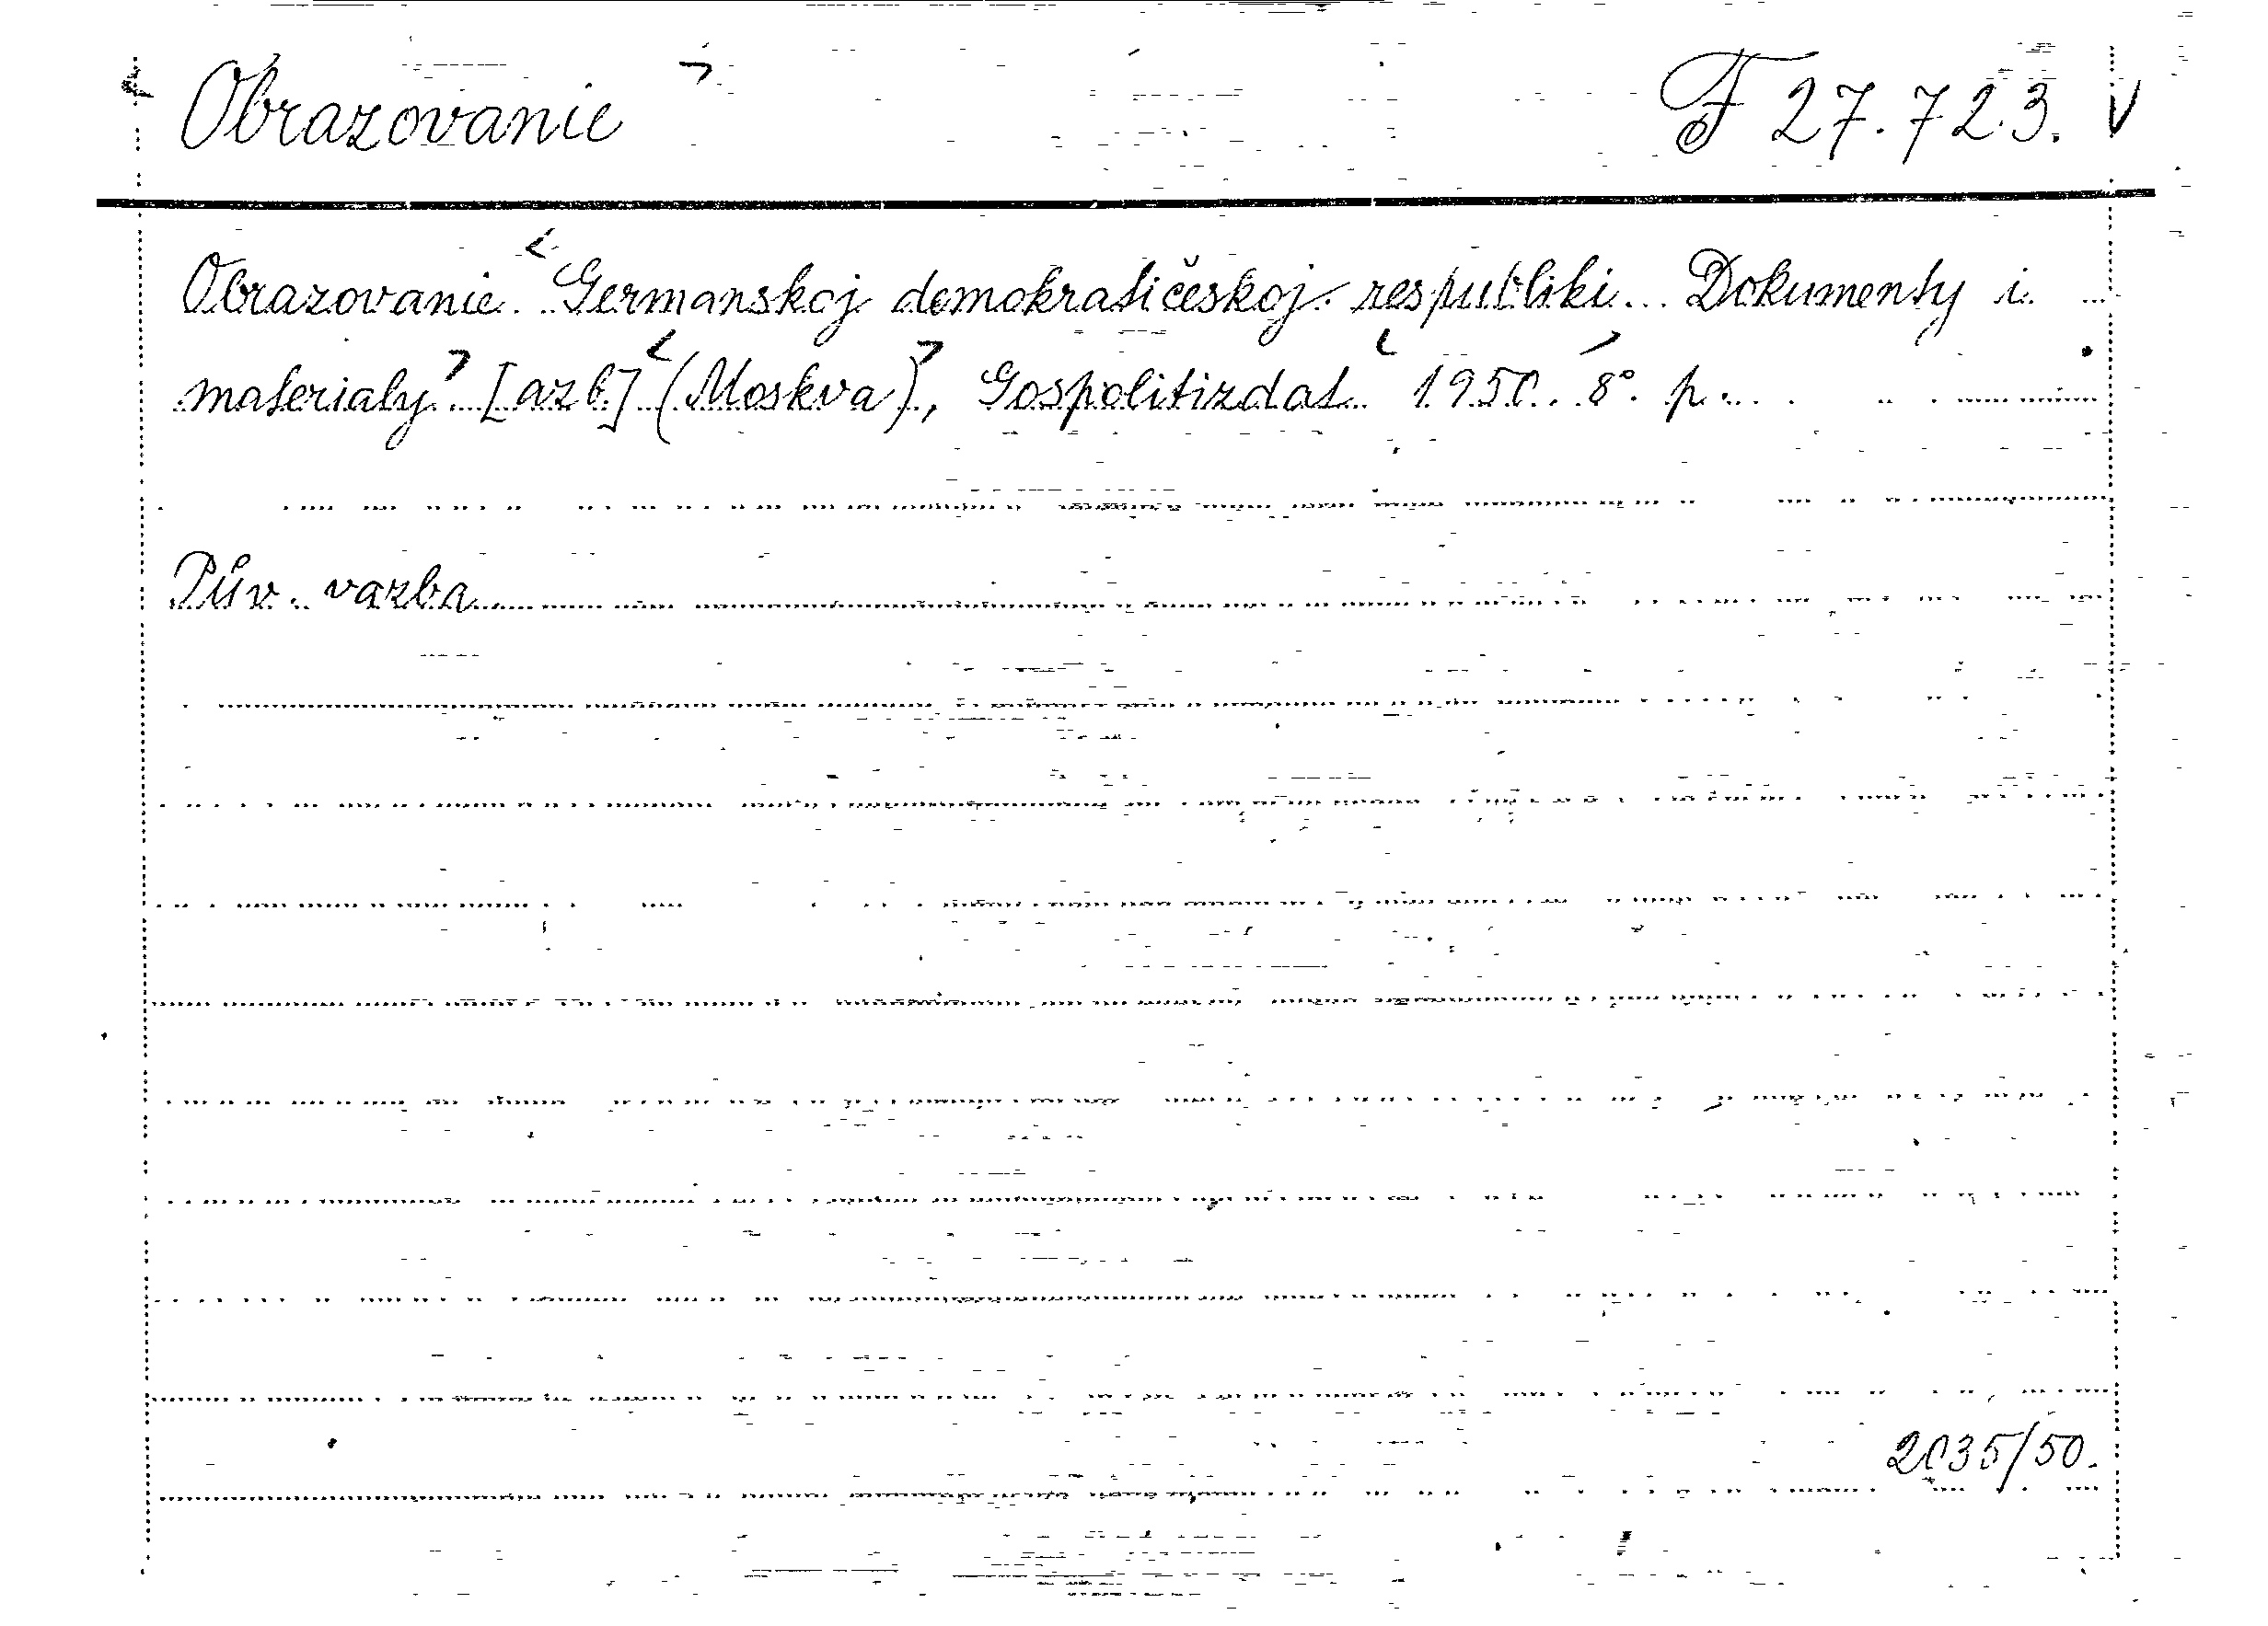 Obrazovanie F 27.723. V
Obrazovanie Germanskoj demokratičeskoj respubliki... Dokumenty i
materialy. [azb.] (Moskva), Gospolitizdat 1950. 8°. p...
Pův. vazba
2035/50.